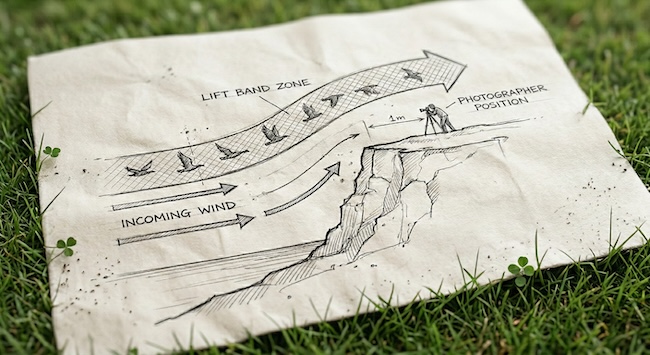 LIFT BAND ZONE
1m
PHOTOGRAPHER
POSITION
INCOMING WIND